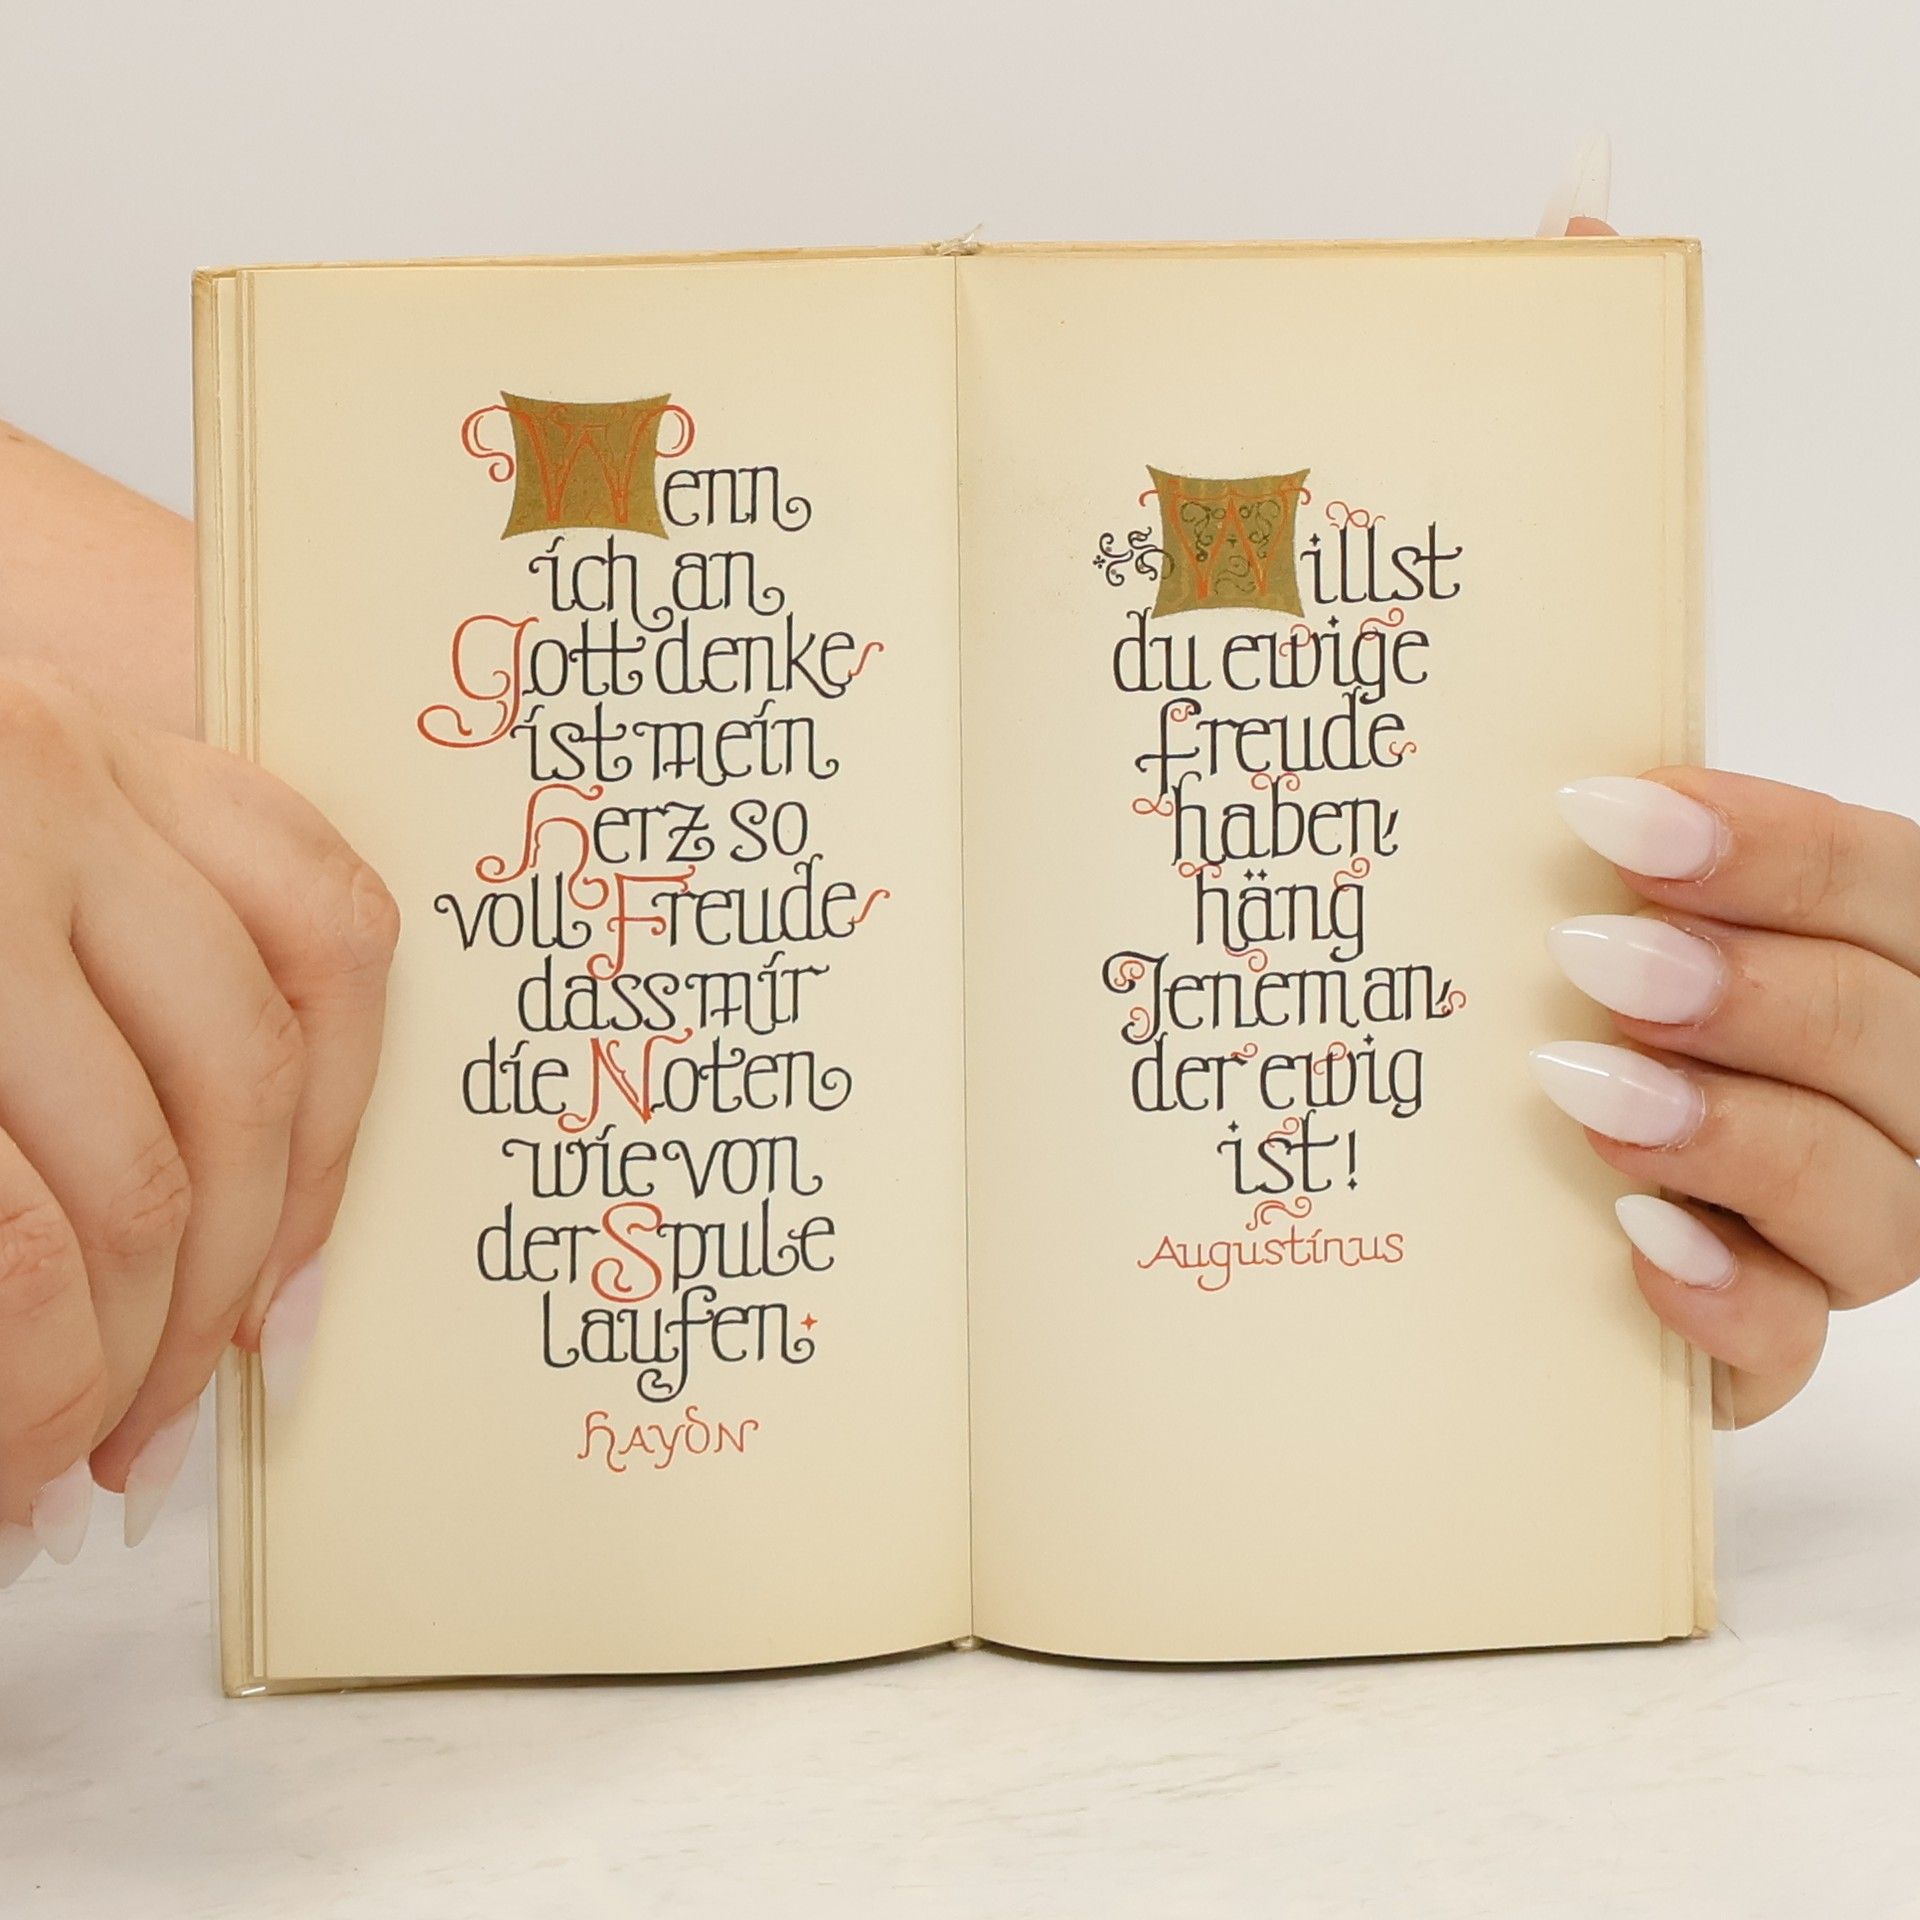 Wenn
ich an
Gott denke
ist mein
Herz so
voll Freude
dass mir
die Noten
wie von
der Spule
laufen.
HAYDN
Willst
du ewige
Freude
haben,
häng
Jenem an,
der ewig
ist!
Augustinus